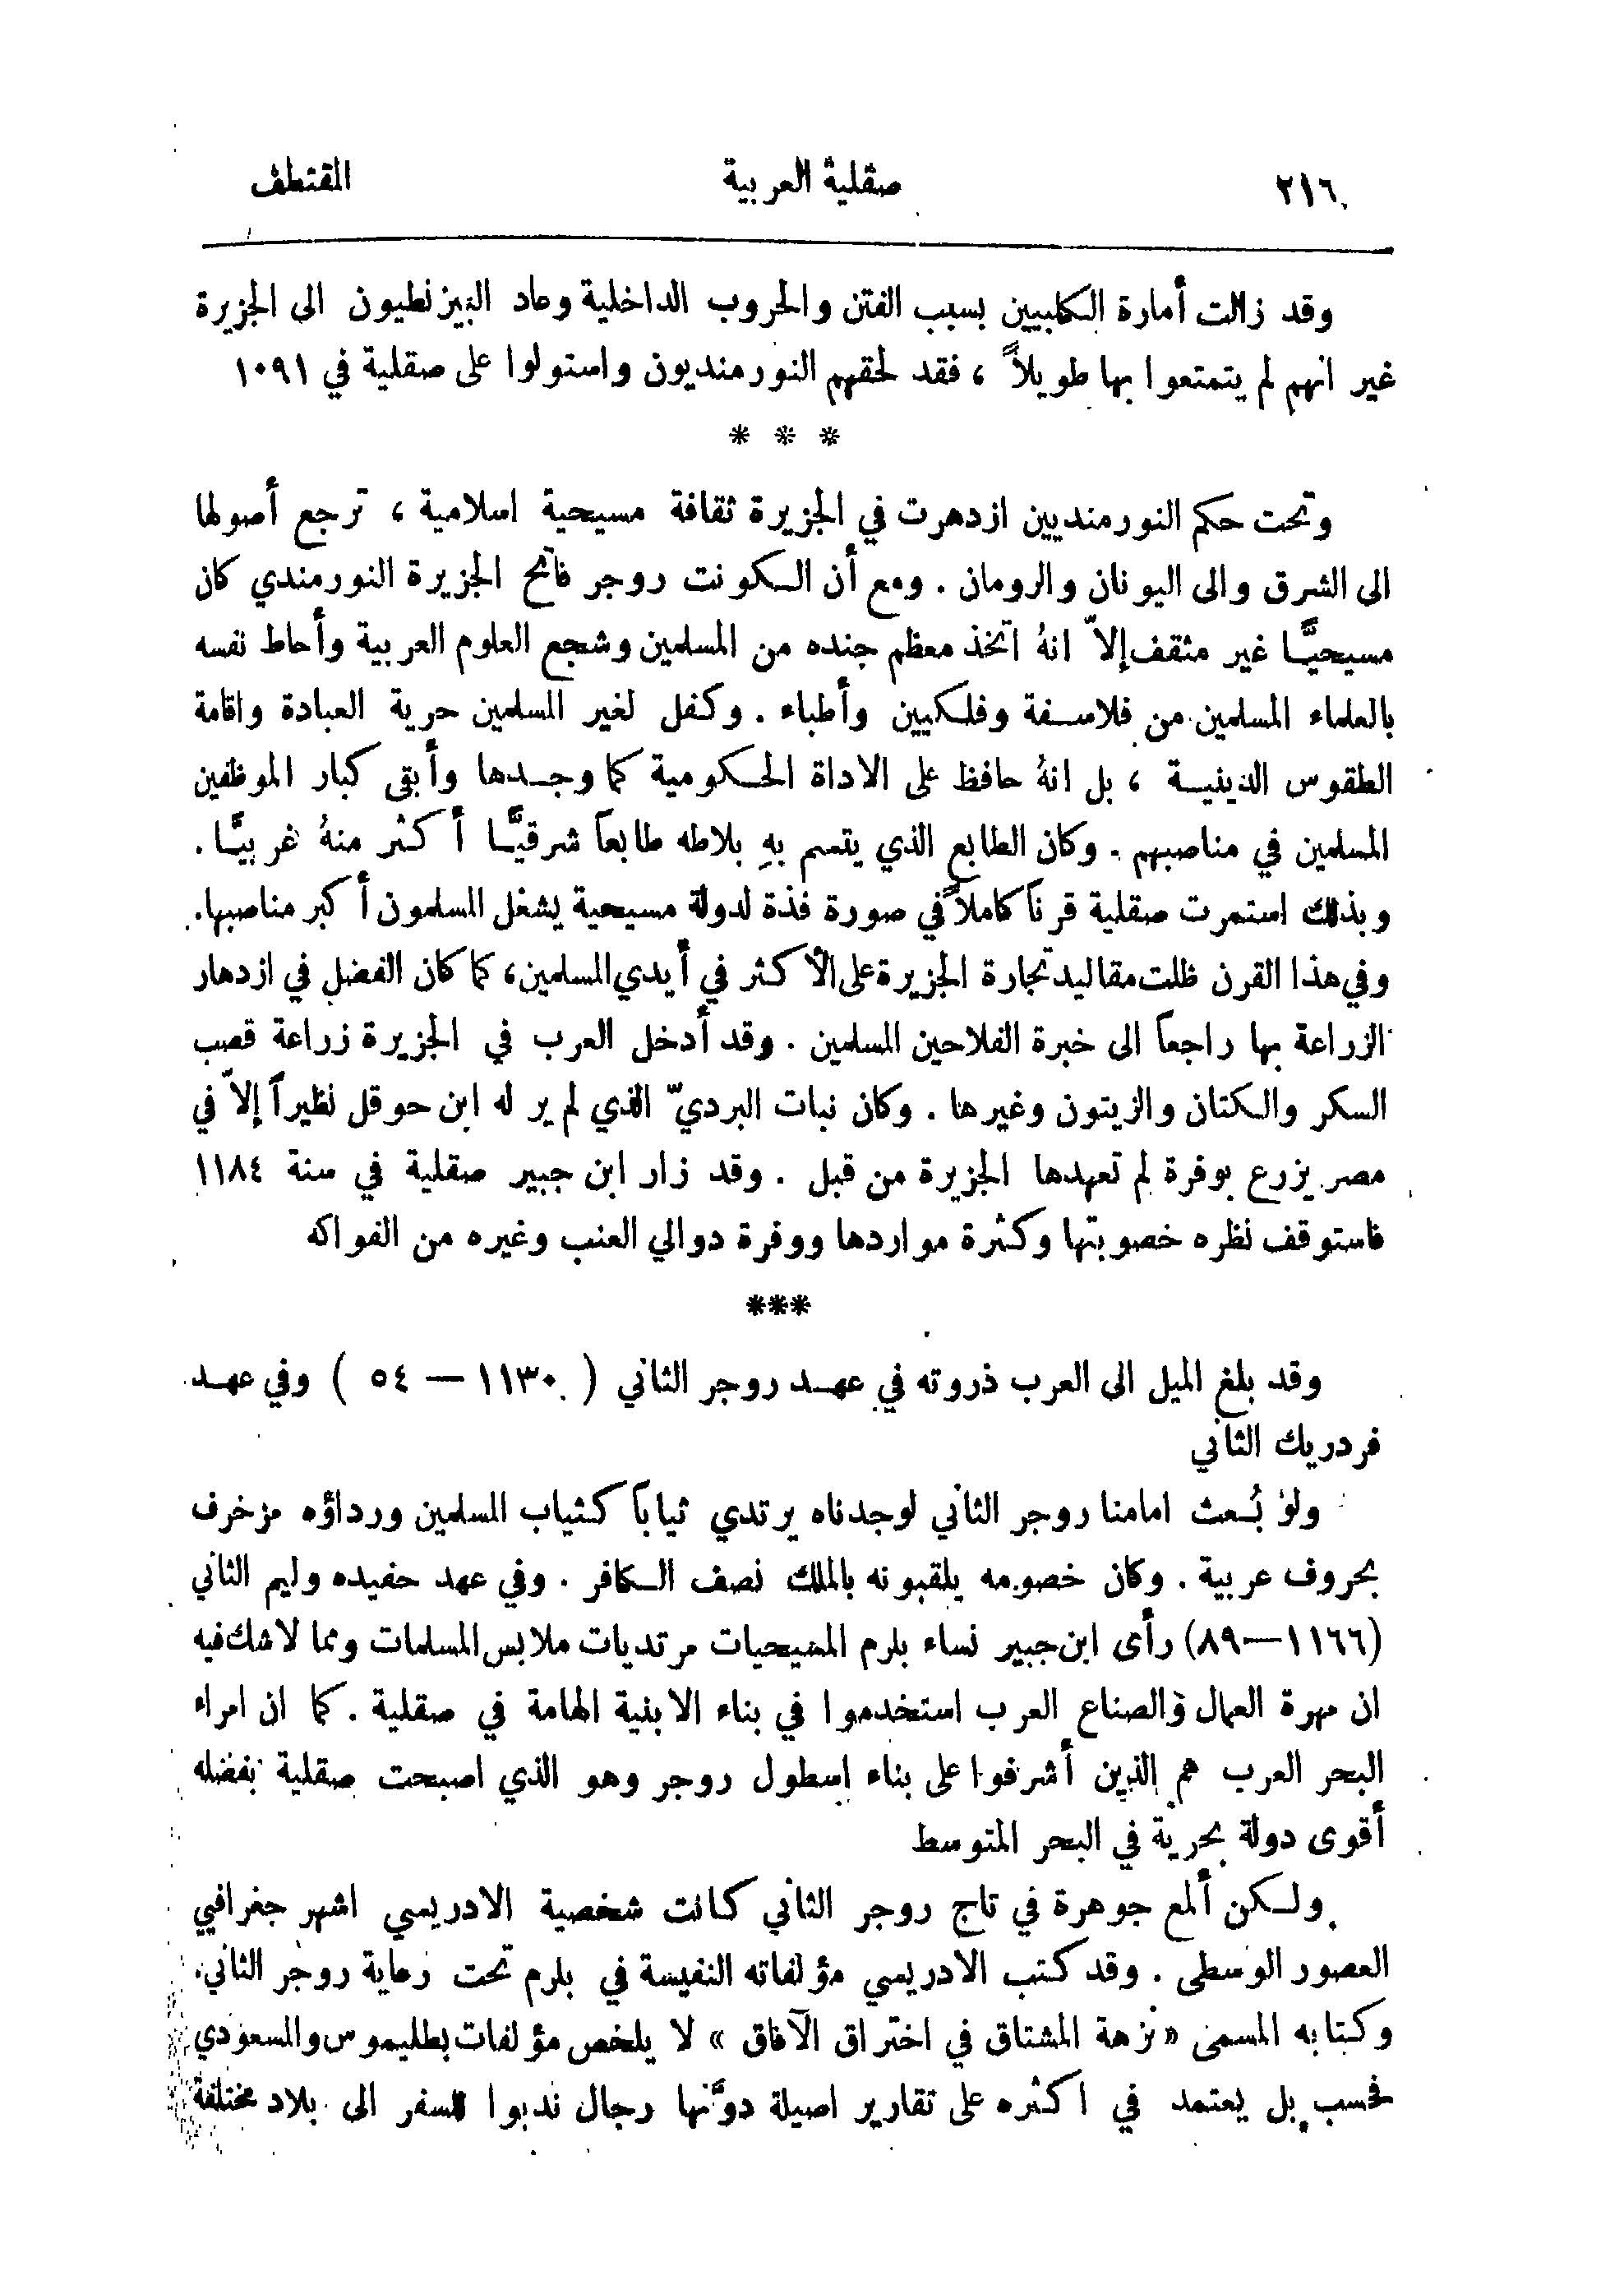 ٢١٦ صقلية العربية المقتطف
وقد زالت أمارة الكلبيين بسبب الفتن والحروب الداخلية وعاد البيزنطيون الى الجزيرة
غير انهم لم يتمتعوا بها طويلاً ، فقد لحقهم النورمنديون واستولوا على صقلية في ١٠٩١
* * *
وتحت حكم النورمنديين ازدهرت في الجزيرة ثقافة مسيحية اسلامية ، ترجع أصولها
الى الشرق والى اليونان والرومان . ومع أن الكونت روجر فاتح الجزيرة النورمندي كان
مسيحيًّا غير مثقف إلاّ انهُ اتخذ معظم جنده من المسلمين وشجع العلوم العربية وأحاط نفسه
بالعلماء المسلمين من فلاسفة وفلكيين وأطباء . وكفل لغير المسلمين حرية العبادة واقامة
الطقوس الدينية ، بل انهُ حافظ على الاداة الحكومية كما وجدها وأبقى كبار الموظفين
المسلمين في مناصبهم . وكان الطابع الذي يتسم بهِ بلاطه طابعاً شرقيًّا أكثر منهُ غربيًّا .
وبذلك استمرت صقلية قرناً كاملاً في صورة فذة لدولة مسيحية يشغل المسلمون أكبر مناصبها.
وفي هذا القرن ظلت مقاليد تجارة الجزيرة على الأكثر في أيدي المسلمين، كما كان الفضل في ازدهار
الزراعة بها راجعاً الى خبرة الفلاحين المسلمين . وقد أدخل العرب في الجزيرة زراعة قصب
السكر والكتان والزيتون وغيرها . وكان نبات البرديّ الذي لم ير له ابن حوقل نظيراً إلاّ في
مصر يزرع بوفرة لم تعهدها الجزيرة من قبل . وقد زار ابن جبير صقلية في سنة ١١٨٤
فاستوقف نظره خصوبتها وكثرة مواردها ووفرة دوالي العنب وغيره من الفواكه
***
وقد بلغ الميل الى العرب ذروته في عهد روجر الثاني ( ١١٣٠ — ٥٤ ) وفي عهد
فردريك الثاني
ولو بُعث امامنا روجر الثاني لوجدناه يرتدي ثياباً كثياب المسلمين ورداؤه مزخرف
بحروف عربية . وكان خصومه يلقبونه بالملك نصف الكافر . وفي عهد حفيده وليم الثاني
(١١٦٦—٨٩) رأى ابن جبير نساء بلرم المسيحيات مرتديات ملابس المسلمات ومما لا شك فيه
ان مهرة العمال والصناع العرب استخدموا في بناء الابنية الهامة في صقلية . كما ان امراء
البحر العرب هم الذين أشرفوا على بناء اسطول روجر وهو الذي اصبحت صقلية بفضله
أقوى دولة بحرية في البحر المتوسط
ولكن ألمع جوهرة في تاج روجر الثاني كانت شخصية الادريسي اشهر جغرافيي
العصور الوسطى . وقد كتب الادريسي مؤلفاته النفيسة في بلرم تحت رعاية روجر الثاني.
وكتابه المسمى « نزهة المشتاق في اختراق الآفاق » لا يلخص مؤلفات بطليموس والمسعودي
فحسب بل يعتمد في اكثره على تقارير اصيلة دوَّنها رجال ندبوا للسفر الى بلاد مختلفة